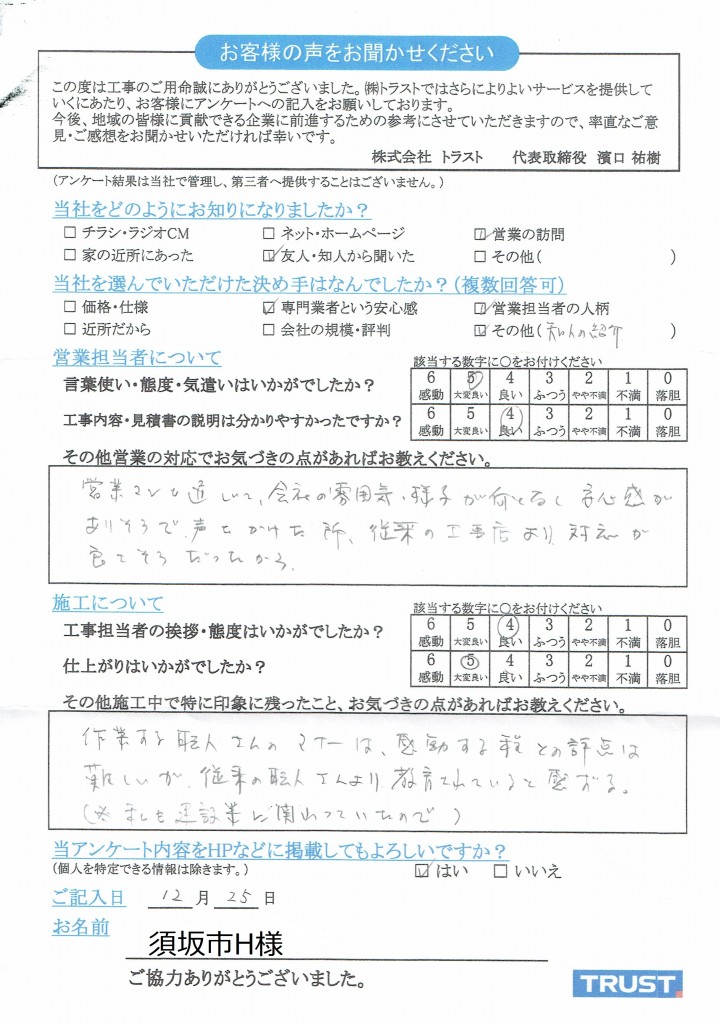 お客様の声をお聞かせください
この度は工事のご用命誠にありがとうございました。㈱トラストではさらによりよいサービスを提供して
いくにあたり、お客様にアンケートへの記入をお願いしております。
今後、地域の皆様に貢献できる企業に前進するための参考にさせていただきますので、率直なご意
見・ご感想をお聞かせいただければ幸いです。
株式会社 トラスト 代表取締役 濱口 祐樹
(アンケート結果は当社で管理し、第三者へ提供することはございません。)
当社をどのようにお知りになりましたか?
☐ チラシ・ラジオCM ☐ ネット・ホームページ ☑ 営業の訪問
☐ 家の近所にあった ☑ 友人・知人から聞いた ☐ その他( )
当社を選んでいただけた決め手はなんでしたか?(複数回答可)
☐ 価格・仕様 ☑ 専門業者という安心感 ☑ 営業担当者の人柄
☐ 近所だから ☐ 会社の規模・評判 ☑ その他(知人の紹介 )
営業担当者について
該当する数字に○をお付けください
言葉使い・態度・気遣いはいかがでしたか?
6 5 4 3 2 1 0
感動 大変良い 良い ふつう やや不満 不満 落胆
工事内容・見積書の説明は分かりやすかったですか?
6 5 4 3 2 1 0
感動 大変良い 良い ふつう やや不満 不満 落胆
その他営業の対応でお気づきの点があればお教えください。
営業マンを通して、会社の雰囲気・様子が何となく安心感が
ありそうで、声をかけた所、従来の工事店より対応が
良さそうだったから。
施工について
該当する数字に○をお付けください
工事担当者の挨拶・態度はいかがでしたか?
6 5 4 3 2 1 0
感動 大変良い 良い ふつう やや不満 不満 落胆
仕上がりはいかがでしたか?
6 5 4 3 2 1 0
感動 大変良い 良い ふつう やや不満 不満 落胆
その他施工中で特に印象に残ったこと、お気づきの点があればお教えください。
作業する職人さんのマナーは、感動する程との評点は
難しいが、従来の職人さんより教育されていると感ずる。
(※私も建設業に関わっていたので)
当アンケート内容をHPなどに掲載してもよろしいですか?
(個人を特定できる情報は除きます。) ☑ はい ☐ いいえ
ご記入日 12 月 25 日
お名前
須坂市H様
ご協力ありがとうございました。
TRUST.